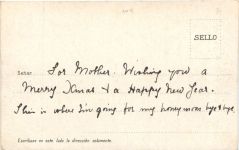 SELLO
Señor For Mother. Wishing you a
Merry Xmas & a Happy New Year.
This is where I'm going for my honeymoon bye & bye
Escríbase en este lado la dirección solamente.